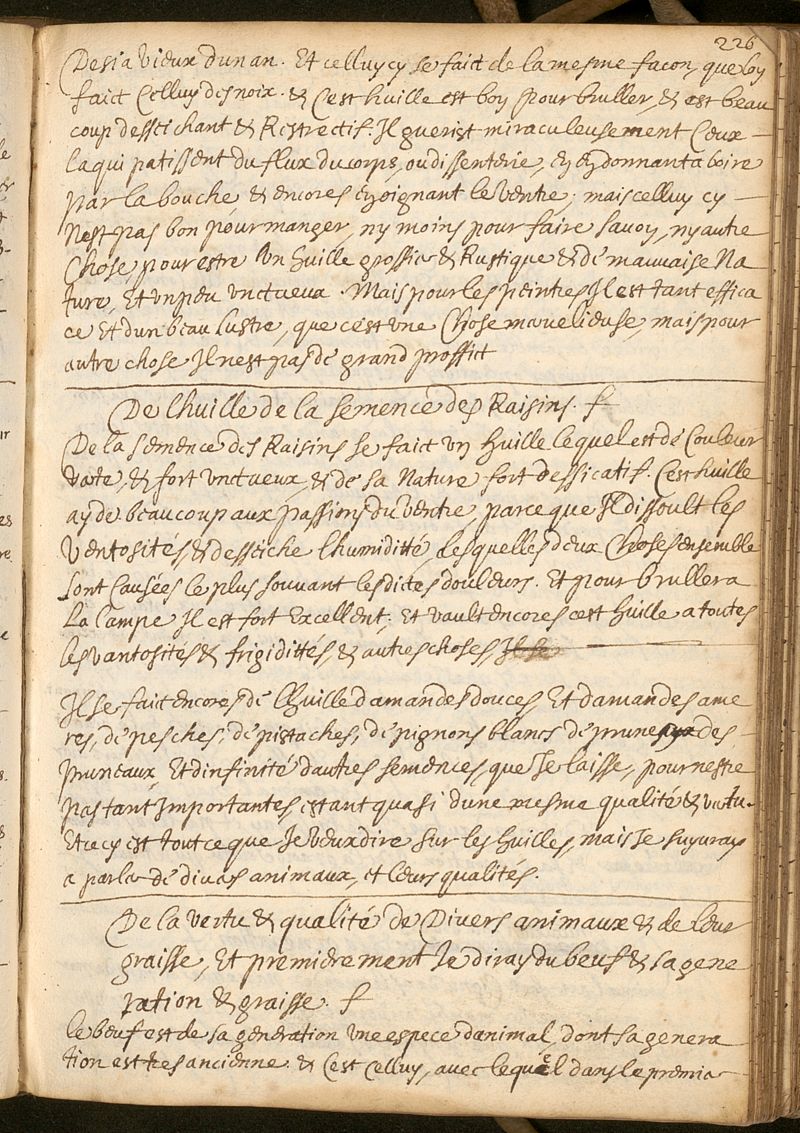 226
Desia vieux dunan. Et celluy cy se faict de la mesme facon, que loy
faict Celluy des noix. & C'est huille est boy pour bruller, & est beau
coup desseichant & Restrectif. Il guerist miraculeusement Ceux
la qui patissent du flux du corps, ou dissenterie, ey ey donnant a boire
par la bouche & encores ey oignant le ventre; mais celluy cy
Nest pas bon pour manger, ny moins pour faire savoy, ny autre
Chose, pour estre Un huille grossier & Rustique & de mauuaise Na
ture, Et un peu unctueux. Mais pour les peintres Il est tant effica
ce Et dun beau Lustre, que c'est une Chose maruelieuse, mais pour
autre chose Il nest pas de grand proffict
De lhuille de la semence des Raisins. f
De la semence des Raisins se faict uy huille lequel est de Couleur
verte, & fort unctueux, & de sa Nature fort dessicatif. C'est huille
ayde beaucoup aux passions du ventre, parce que Il dissoult les
Ventosités, & desseiche l'humiditté, Lesquelles deux Choses ensemble
sont Causées le plus souuant lesdictes douleurs. Et pour bruller a
La lampe Il est fort Excellent; Et vault encores cest huille a toutes
les vantosités & frigidittés, & autres choses, Il se
Il se faict encores de lhuille damandes douces, Et damandes ame
res, de pesches, de pistaches, de pignons blancs de prunes des
pruneaux, Et dinfinité dautres semences, que Je laisse, pour nestre
pas tant Importantes, estant quasi dune mesme qualité & vertu.
Et cecy est tout ce que Je veux dire sur les huilles, mais Je suyuray
a parler de diuers animaux, et leurs qualités.
De la vertu & qualité de Divers animaux & de leur
graisse, Et premierement Je diray du beuf & sa gene
ration & graisse. f
le beuf est de sa generation une espece danimal, dont sa genera
tion est tres ancienne. & C'est Celluy, avec lequel dans le premier